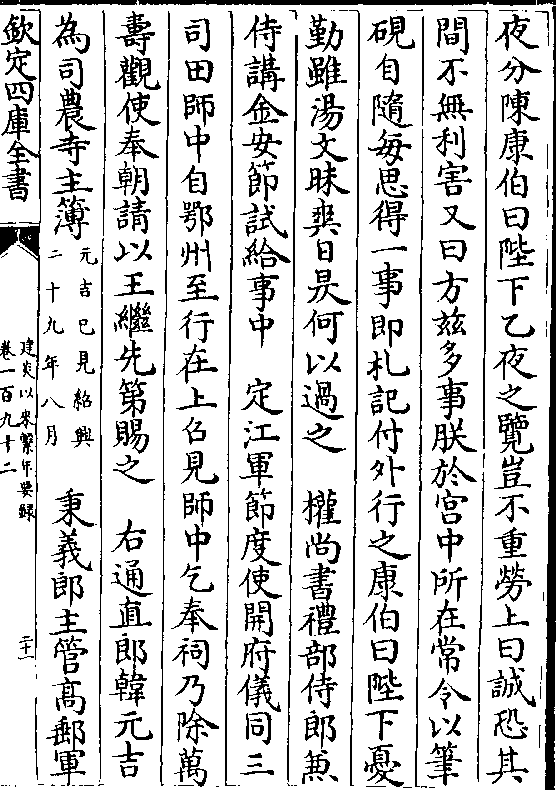 夜分陳康伯曰陛下乙夜之覽豈不重勞上曰誠恐其
間不無利害又曰方兹多事朕於宫中所在常令以筆
硯自隨每思得一事即札記付外行之康伯曰陛下憂
勤雖湯文昧爽日昃何以過之　權尚書禮部侍郎兼
侍講金安節試給事中　定江軍節度使開府儀同三
司田師中自鄂州至行在上召見師中乞奉祠乃除萬
壽觀使奉朝請以王繼先第賜之　右通直郎韓元吉
為司農寺主簿元吉已見紹興二十九年八月　秉義郎主管髙郵軍
欽定四庫全書
建炎以來繫年要錄
卷一百九十二
二十一